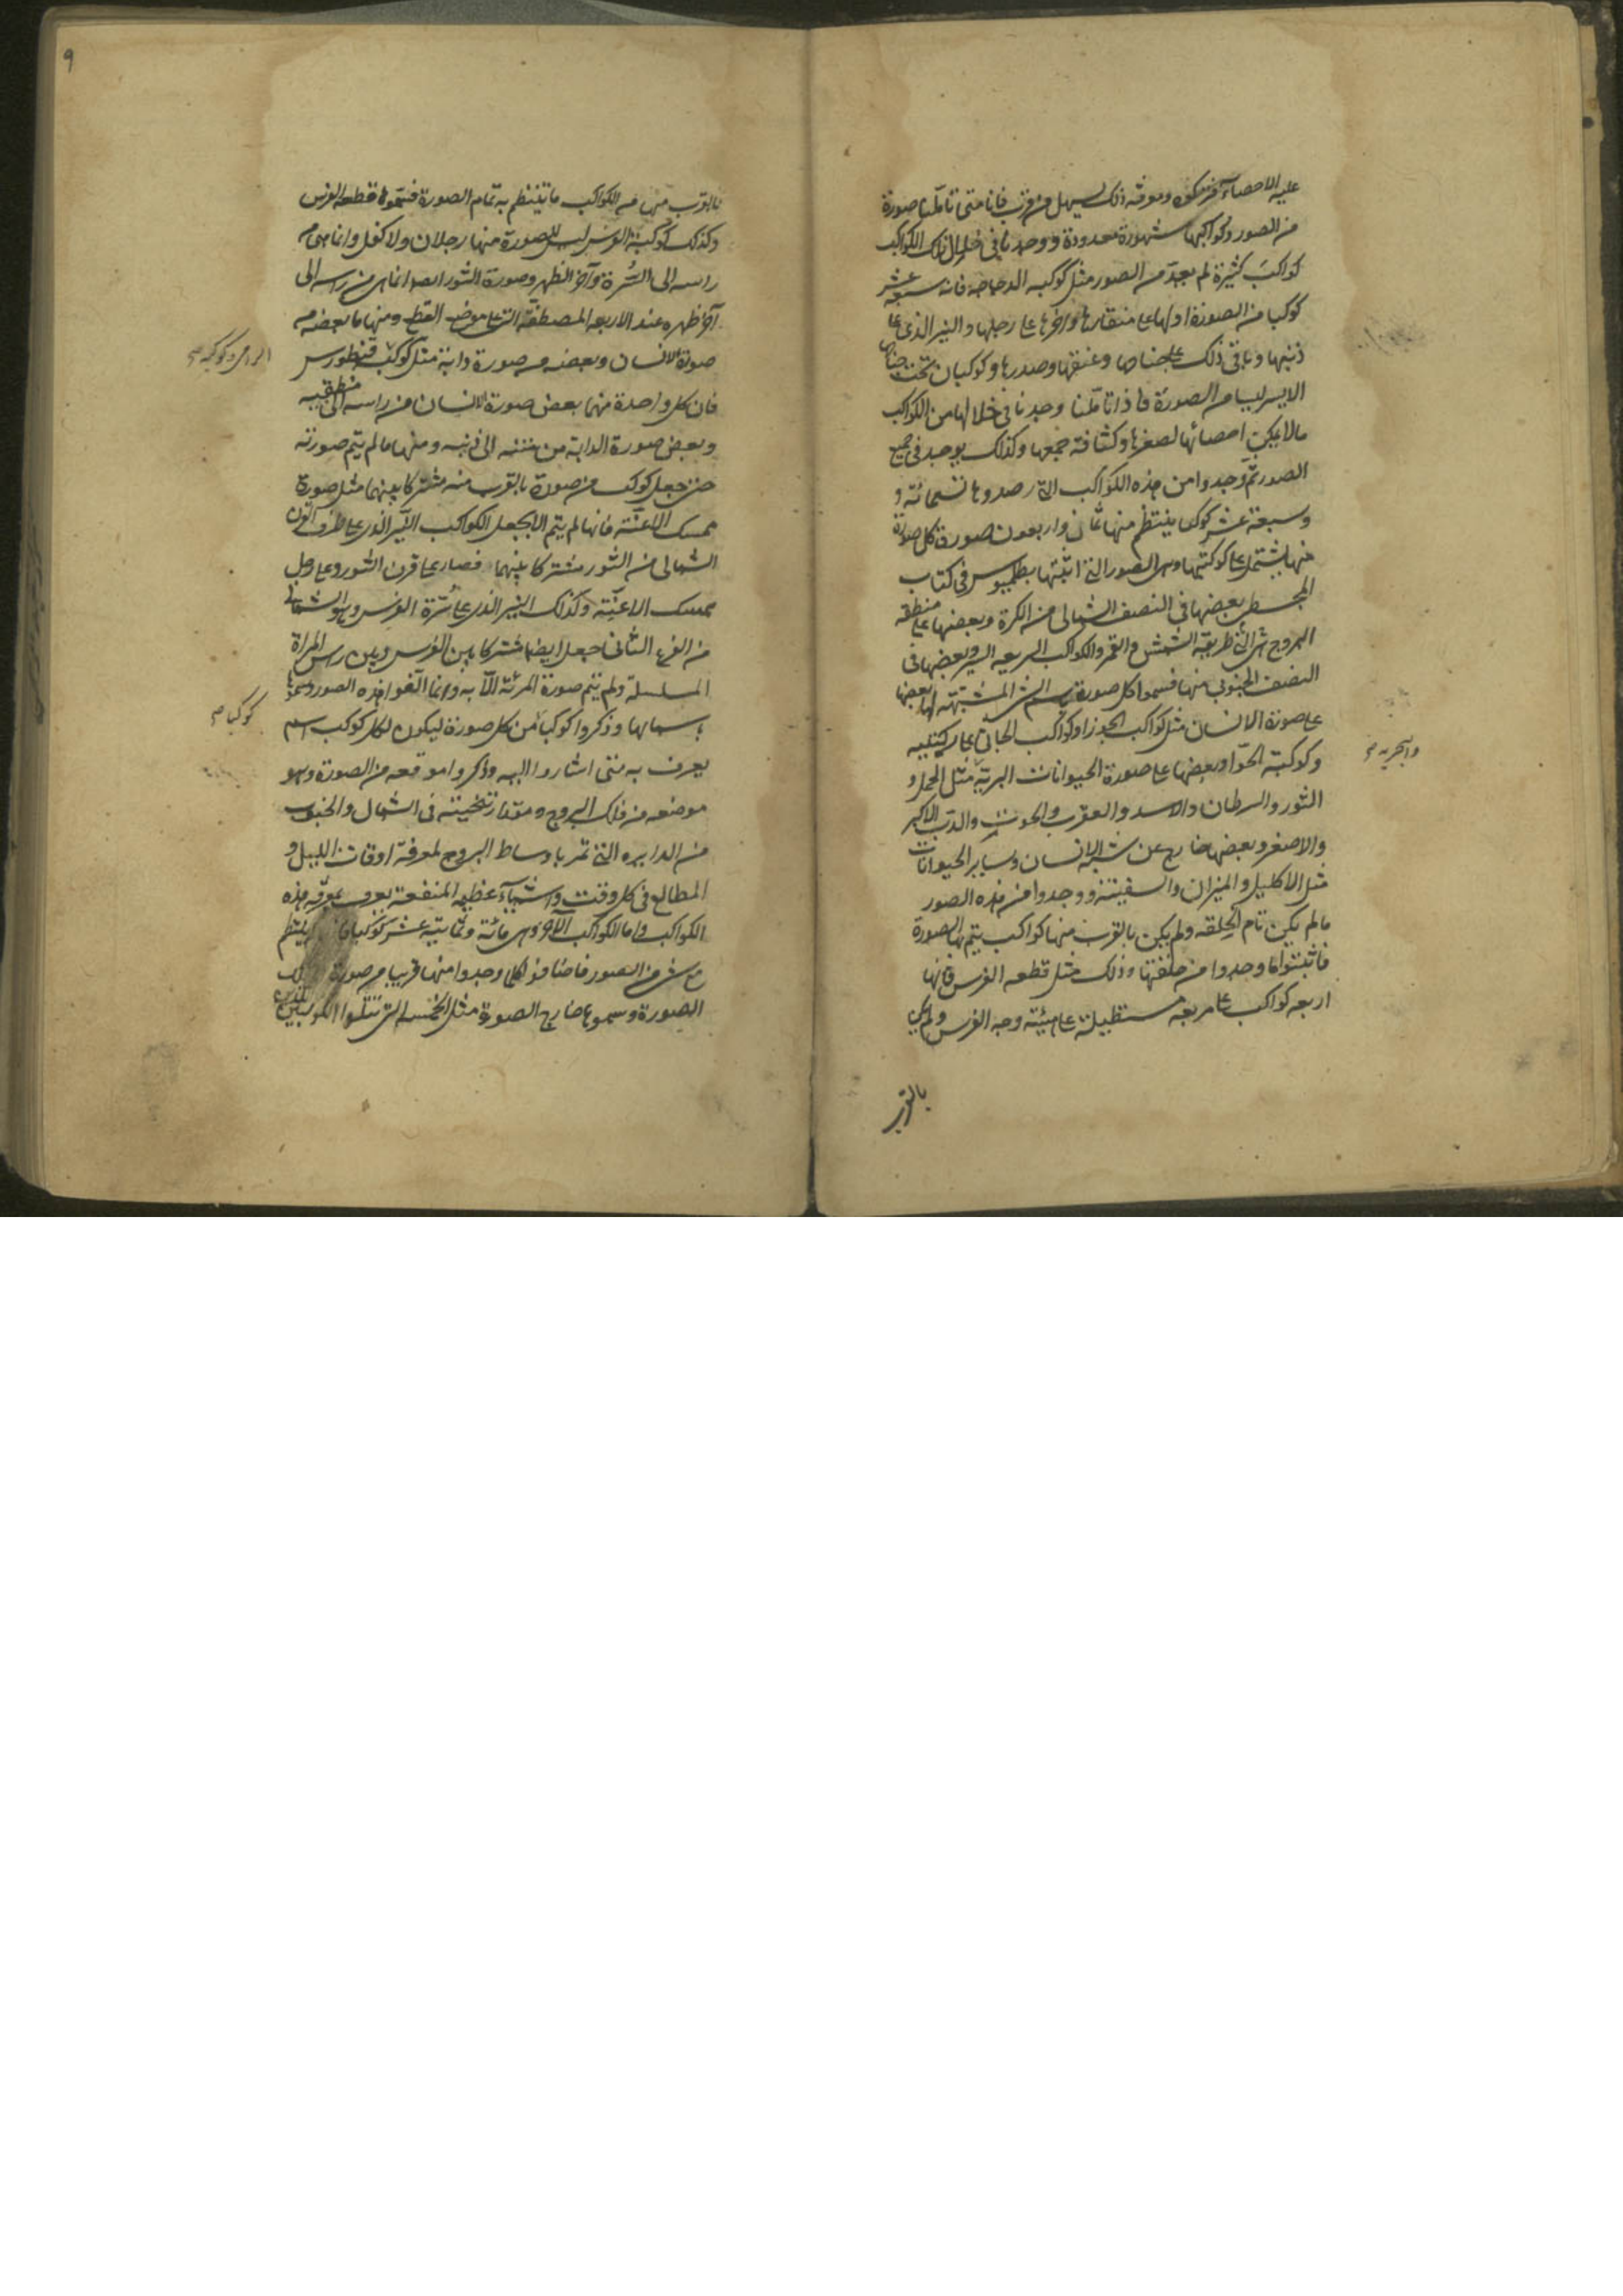 عليه الاحصاء كثرة ومعرفة ذلك يسهل من قرب فانا متى تأملنا صورة
من الصور وكواكبها مشهورة معدودة ووجدنا في خلال تلك الكواكب
كواكب كثيرة لم يعد من الصور مثل كوكبه الدجاجه فانه سبعه عشر
كوكبا من الصورة اولها على منقارها واخرها على رجلها والنير الذى على
ذنبها وباقى ذلك على جناحها وعنقها وصدرها وكوكبان تحت جناحها
الايسر ليسا من الصورة فاذا تأملنا وجدنا فى خلالها من الكواكب
مالا يمكن احصائها لصغرها وكثافة جمعها وكذلك يوجد فى جميع
الصور ثم وجدوا من هذه الكواكب التى رصدوها تسعمائة و
وسبعة عشر كوكبا ينتظم منها ثمان واربعون صورة كل صورة
منها يشتمل على كوكبتها وهى الصور التى اثبتها بطلميوس فى كتاب
المجسطى بعضها فى النصف الشمالى من الكرة وبعضها على منطقه
البروج هى التى طريقة الشمس والقمر والكواكب السريعه السير وبعضها فى
النصف الجنوبى منها فسموا كل صورة باسم الشى المشبهة لها بعضها
على صورة الانسان مثل كواكب الجوزا وكواكب الجاثى على ركبتيه
وكوكبة الحوا وبعضها على صورة الحيوانات البرية مثل الحمل و
والبحريه صح
الثور والسرطان والاسد والعقرب والحوت والدب الاكبر
والاصغر وبعضها خارج عن شبه الانسان وساير الحيوانات
مثل الاكليل والميزان والسفينة ووجدوا من هذه الصور
مالم يكن تام الخلقه ولم يكن بالقرب منها كواكب يتم بها الصورة
فاثبتوا ما وجدوا من خلقتها وذلك مثل قطعه الفرس فانها
اربعه كواكب على مربعه مستطيلة على هيئة وجه الفرس ولم يكن
بالقرب
٩
بالقرب منها من الكواكب ما ينتظم به تمام الصورة فسموه قطعه الفرس
وكذلك كوكبة الفرس ليس للصورة منها رجلان ولا كفل وانما هى من
راسه الى السرة وآخر الظهر وصورة الثور ايضا انما هى من راسه الى
آخر ظهره عند الاربعه المصطفة التى على موضع القطع ومنها ما بعضه من
صورة الانسان وبعضه من صورة دابة مثل كوكبة قنطورس
الرامى وكوكبة صح
فان كل واحدة منهما بعض صورة الانسان من راسه الى منطقته
وبعض صورة الدابة من متنه الى ذنبه ومنها ما لم يتم صورته
حتى جعل كوكب من صورة بالقرب منه مشتركا بينهما مثل صورة
ممسك الاعنة فانها لم يتم الا بجعل الكواكب النير الذى على طرف القرن
الشمالى من الثور مشتركا بينهما فصار على قرن الثور وعلى رجل
ممسك الاعنة وكذلك النير الذى على سرة الفرس وهو الشمالى
من الفرع الثانى جعل ايضا مشتركا بين الفرس وبين راس المراة
المسلسلة ولم يتم صورة المرئة الا به وانما الفوا هذه الصور وسموها
باسمائها وذكروا كوكبا من كل صورة ليكون لكل كوكب اسم
كوكبا صح
يعرف به متى اشاروا اليه وذكروا موقعه من الصورة وهو
موضعه من فلك البروج ومقدار تنحيته فى الشمال والجنوب
من الدايره التى تمر باوساط البروج لمعرفة اوقات الليل و
المطالع فى كل وقت واشياء عظيمه المنفعة يعرف بمعرفه هذه
الكواكب واما الكواكب الاخر وهى مائة وثمانية عشر كوكبا فانه ينتظم
مع شى من الصور فاضافوا كلما وجدوا منها قريبا من صورة
الصورة وسموها خارج الصورة مثل الخمسة التى تتلوا الكوكبين